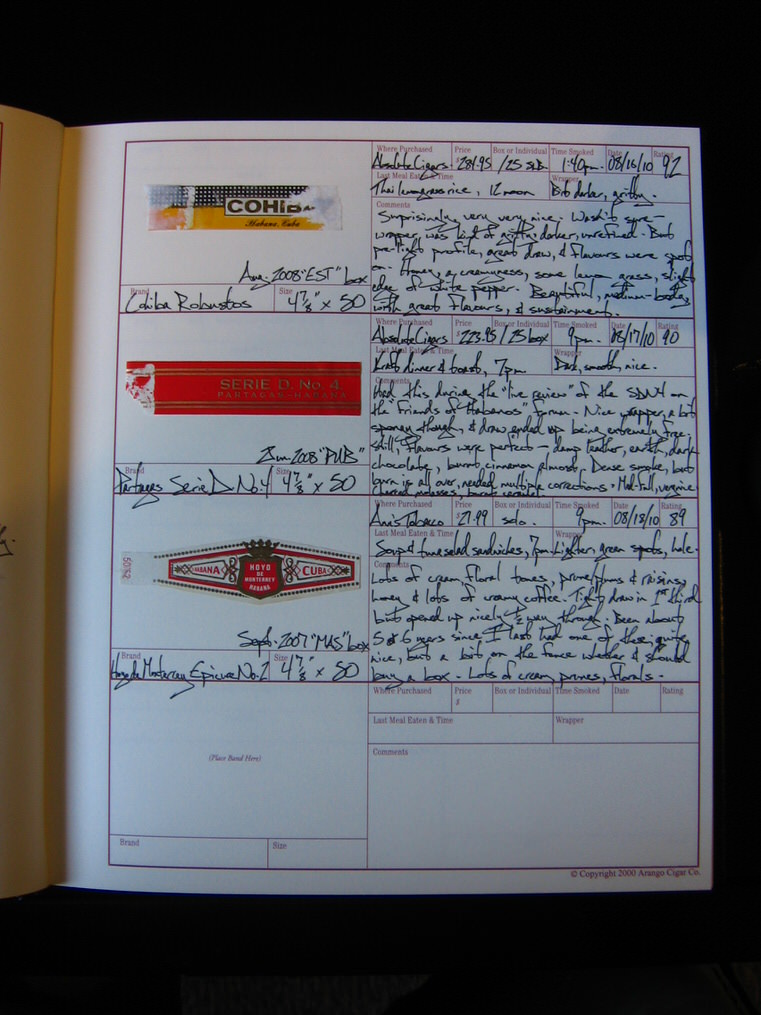 Where Purchased Price Box or Individual Time Smoked Date Rating
Absolute Cigars. $ 281.95 /25 SLB. 1:40pm. 08/16/10 92
Last Meal Eaten & Time Wrapper
Thai lemongrass rice, 12 noon Bit darker, gritty.
Comments
Surprisingly, very very nice. Wasn't sure-
wrapper, was kind of gritty, darker, unrefined. But
pre-light profile, great draw, & flavours were spot
on. Honey, a creaminess, some lemon grass, slight
edge of white pepper. Beautiful, medium-bodied,
with great flavours, & sustainment.
COHIBA
Habana, Cuba
Aug. 2008 "EST" box
Brand Size
Cohiba Robustos 4 7/8" x 50
Where Purchased Price Box or Individual Time Smoked Date Rating
Absolute Cigars $ 223.95 /25 box 9pm. 08/17/10 90
Last Meal Eaten & Time Wrapper
dinner & toast, 7pm Dark, smooth, nice.
Comments
Had this during the "live review" of the SDN4 on
the "Friends of Habanos" forum - Nice wrapper, a bit
spongy though, & draw ended up being extremely free.
Still, flavours were perfect - damp leather, earth, dark
chocolate, burnt cinnamon almost. Dense smoke, but
burn is all over, needed multiple corrections. Med-full, verging
charred molasses, burnt
SERIE D. No. 4
PARTAGAS-HABANA
Jun. 2008 "PUB"
Brand Size
Partagas Serie D. No. 4 4 7/8" x 50
Where Purchased Price Box or Individual Time Smoked Date Rating
Ani's Tobacco $ 27.99 solo. 9pm. 08/18/10 89
Last Meal Eaten & Time Wrapper
Soup & tuna salad sandwiches, 7pm Lighter, green spots, hole.
Comments
Lots of cream, floral tones, prune/plums & raisins,
honey & lots of creamy coffee. Tight draw in 1st third
but opened up nicely 1/2 way through. Been about
5 or 6 years since I last had one of these, quite
nice, but a bit on the fence whether I should
buy a box. Lots of cream, prunes, florals.
50752
HABANA
HOYO
DE
MONTERREY
HABANA
CUBA
Sept. 2007 "MAS" box
Brand Size
Hoyo de Monterrey Epicure No. 2 4 7/8" x 50
Where Purchased Price Box or Individual Time Smoked Date Rating
$
Last Meal Eaten & Time Wrapper
Comments
(Place Band Here)
Brand Size
© Copyright 2000 Arango Cigar Co.